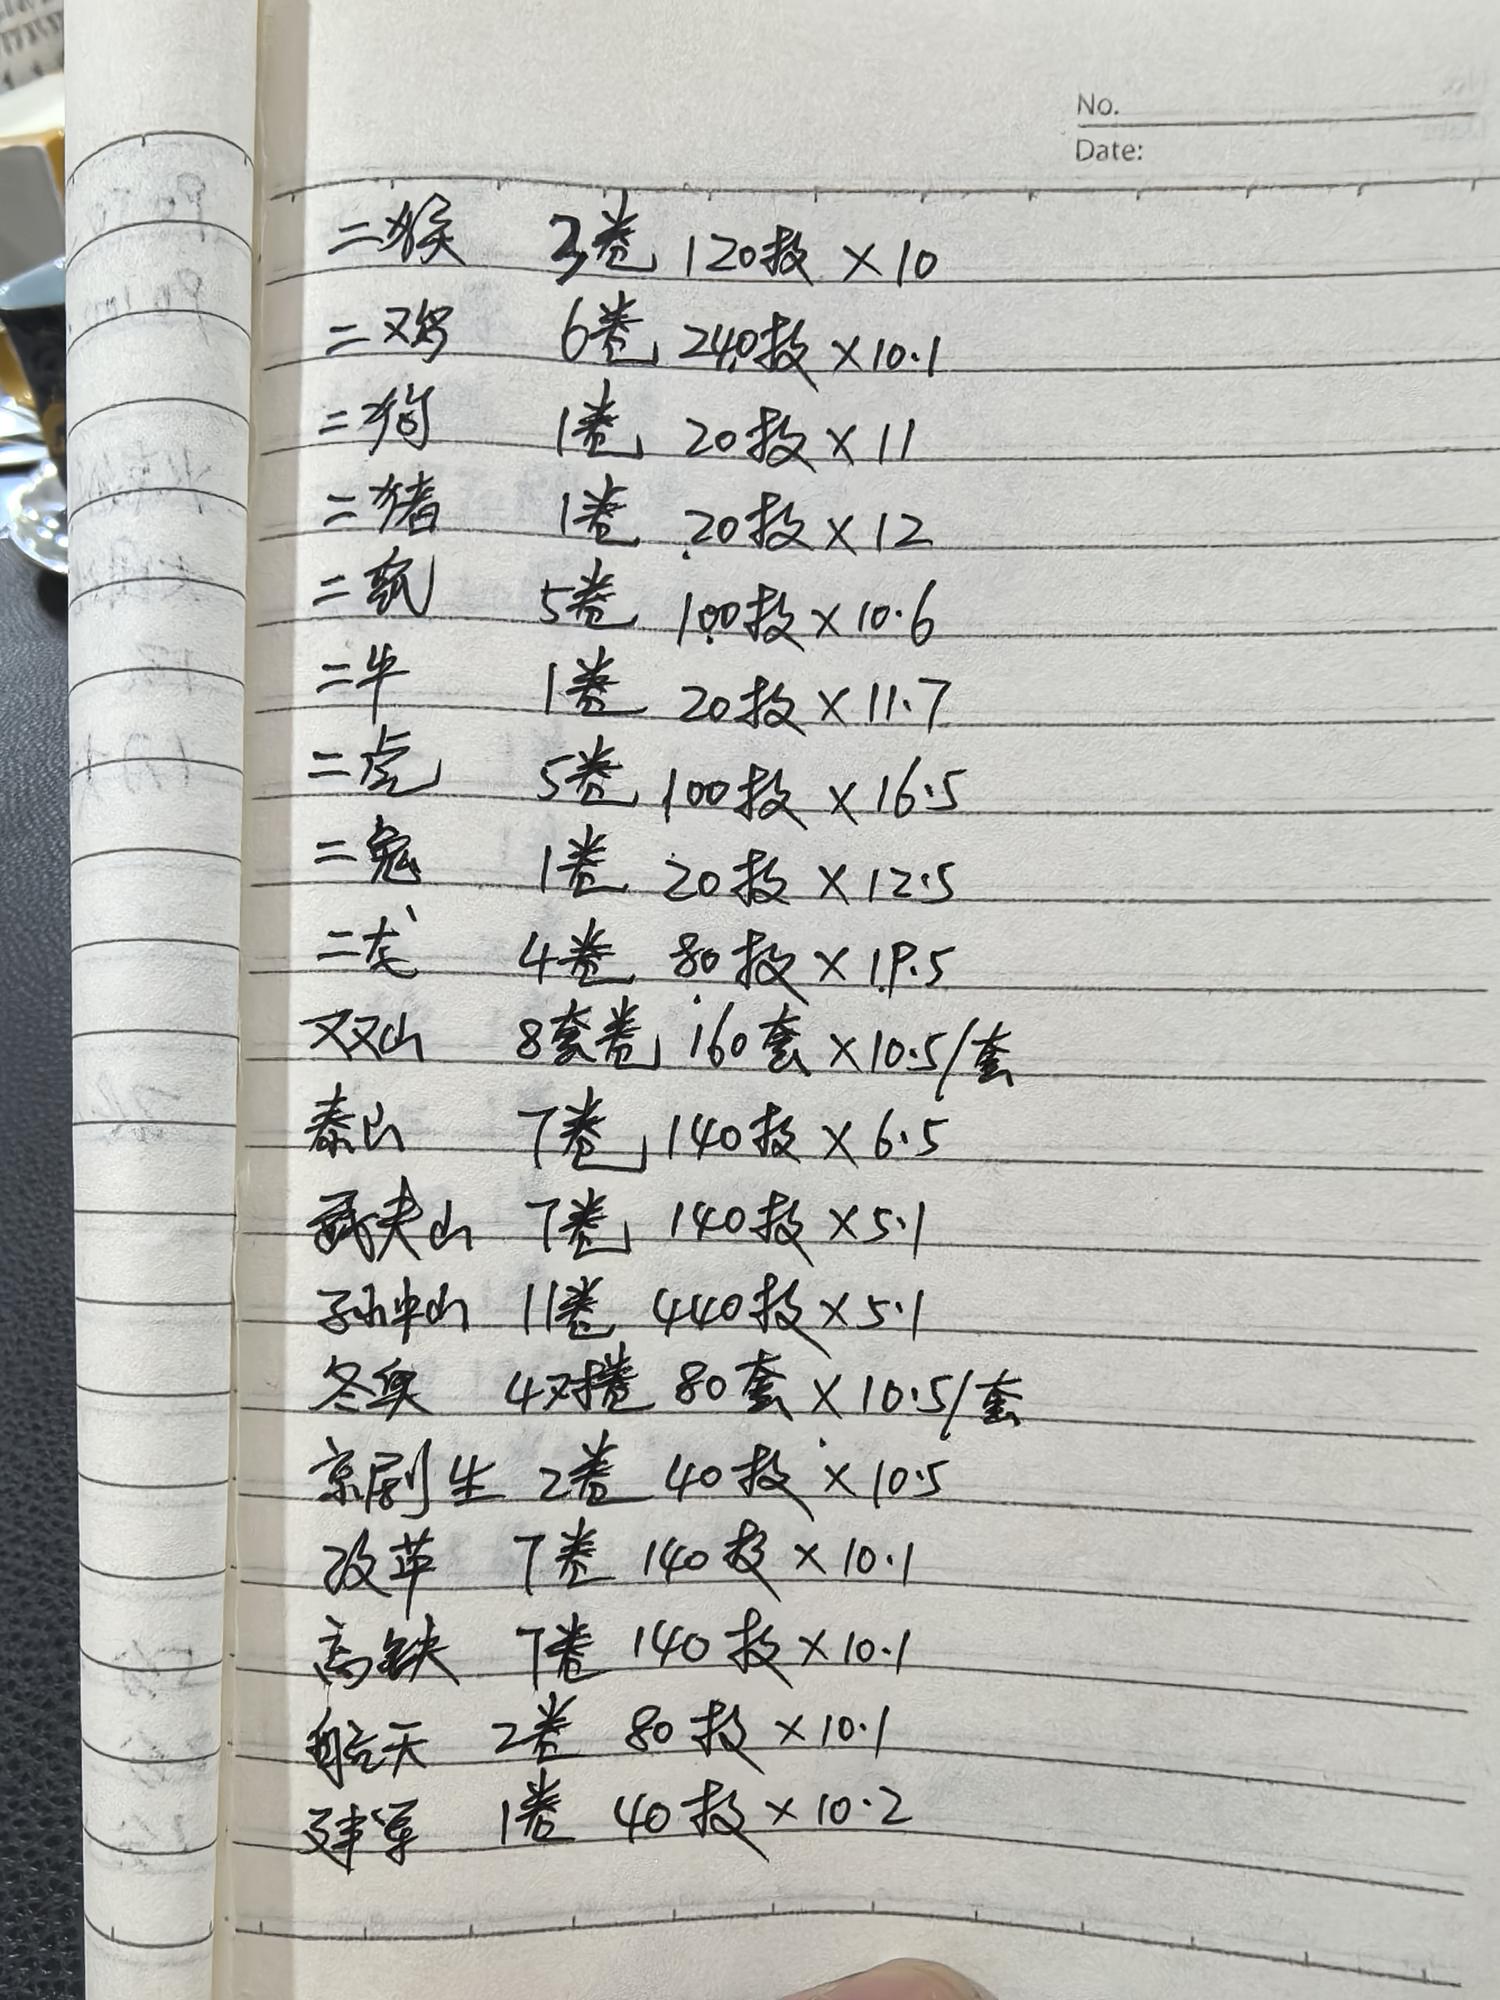 No.
Date:
二猴 3卷 120枚 ×10
二鸡 6卷 240枚 ×10.1
二狗 1卷 20枚 ×11
二猪 1卷 20枚 ×12
二 5卷 100枚 ×10.6
二牛 1卷 20枚 ×11.7
二虎 5卷 100枚 ×16.5
二兔 1卷 20枚 ×12.5
二龙 4卷 80枚 ×19.5
双山 8套卷 160套 ×10.5/套
泰山 7卷 140枚 ×6.5
武夫山 7卷 140枚 ×5.1
孙中山 11卷 440枚 ×5.1
冬奥 4对捲 80套 ×10.5/套
京剧生 2卷 40枚 ×10.5
改革 7卷 140枚 ×10.1
高铁 7卷 140枚 ×10.1
航天 2卷 80枚 ×10.1
建军 1卷 40枚 ×10.2